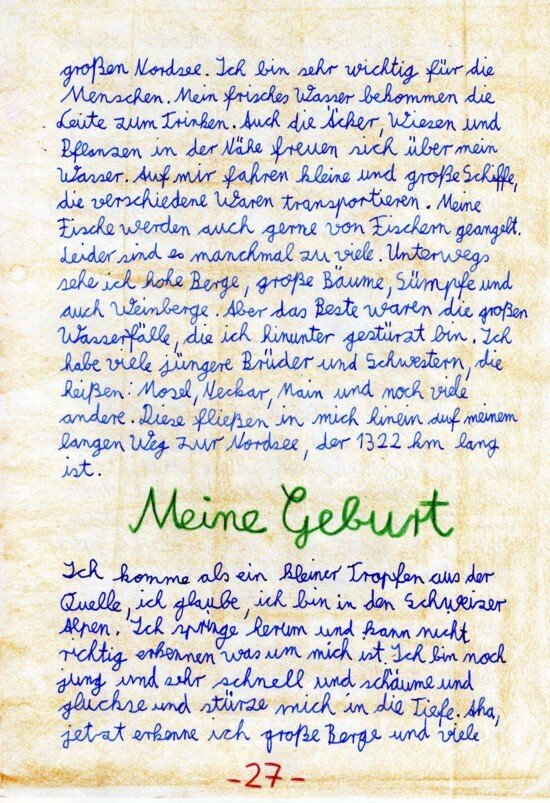 großen Nordsee. Ich bin sehr wichtig für die
Menschen. Mein frisches Wasser bekommen die
Leute zum Trinken. Auch die Äcker, Wiesen und
Pflanzen in der Nähe freuen sich über mein
Wasser. Auf mir fahren kleine und große Schiffe,
die verschiedene Waren transportieren. Meine
Fische werden auch gerne von Fischern geangelt.
Leider sind es manchmal zu viele. Unterwegs
sehe ich hohe Berge, große Bäume, Sümpfe und
auch Weinberge. Aber das Beste waren die großen
Wasserfälle, die ich hinunter gestürzt bin. Ich
habe viele jüngere Brüder und Schwestern, die
heißen: Mosel, Neckar, Main und noch viele
andere. Diese fließen in mich hinein auf meinem
langen Weg zur Nordsee, der 1322 km lang
ist.
Meine Geburt
Ich komme als ein kleiner Tropfen aus der
Quelle, ich glaube, ich bin in den Schweizer
Alpen. Ich springe herum und kann nicht
richtig erkennen was um mich ist. Ich bin noch
jung und sehr schnell und schäume und
gluckse und stürze mich in die Tiefe. Aha,
jetzt erkenne ich große Berge und viele
-27-